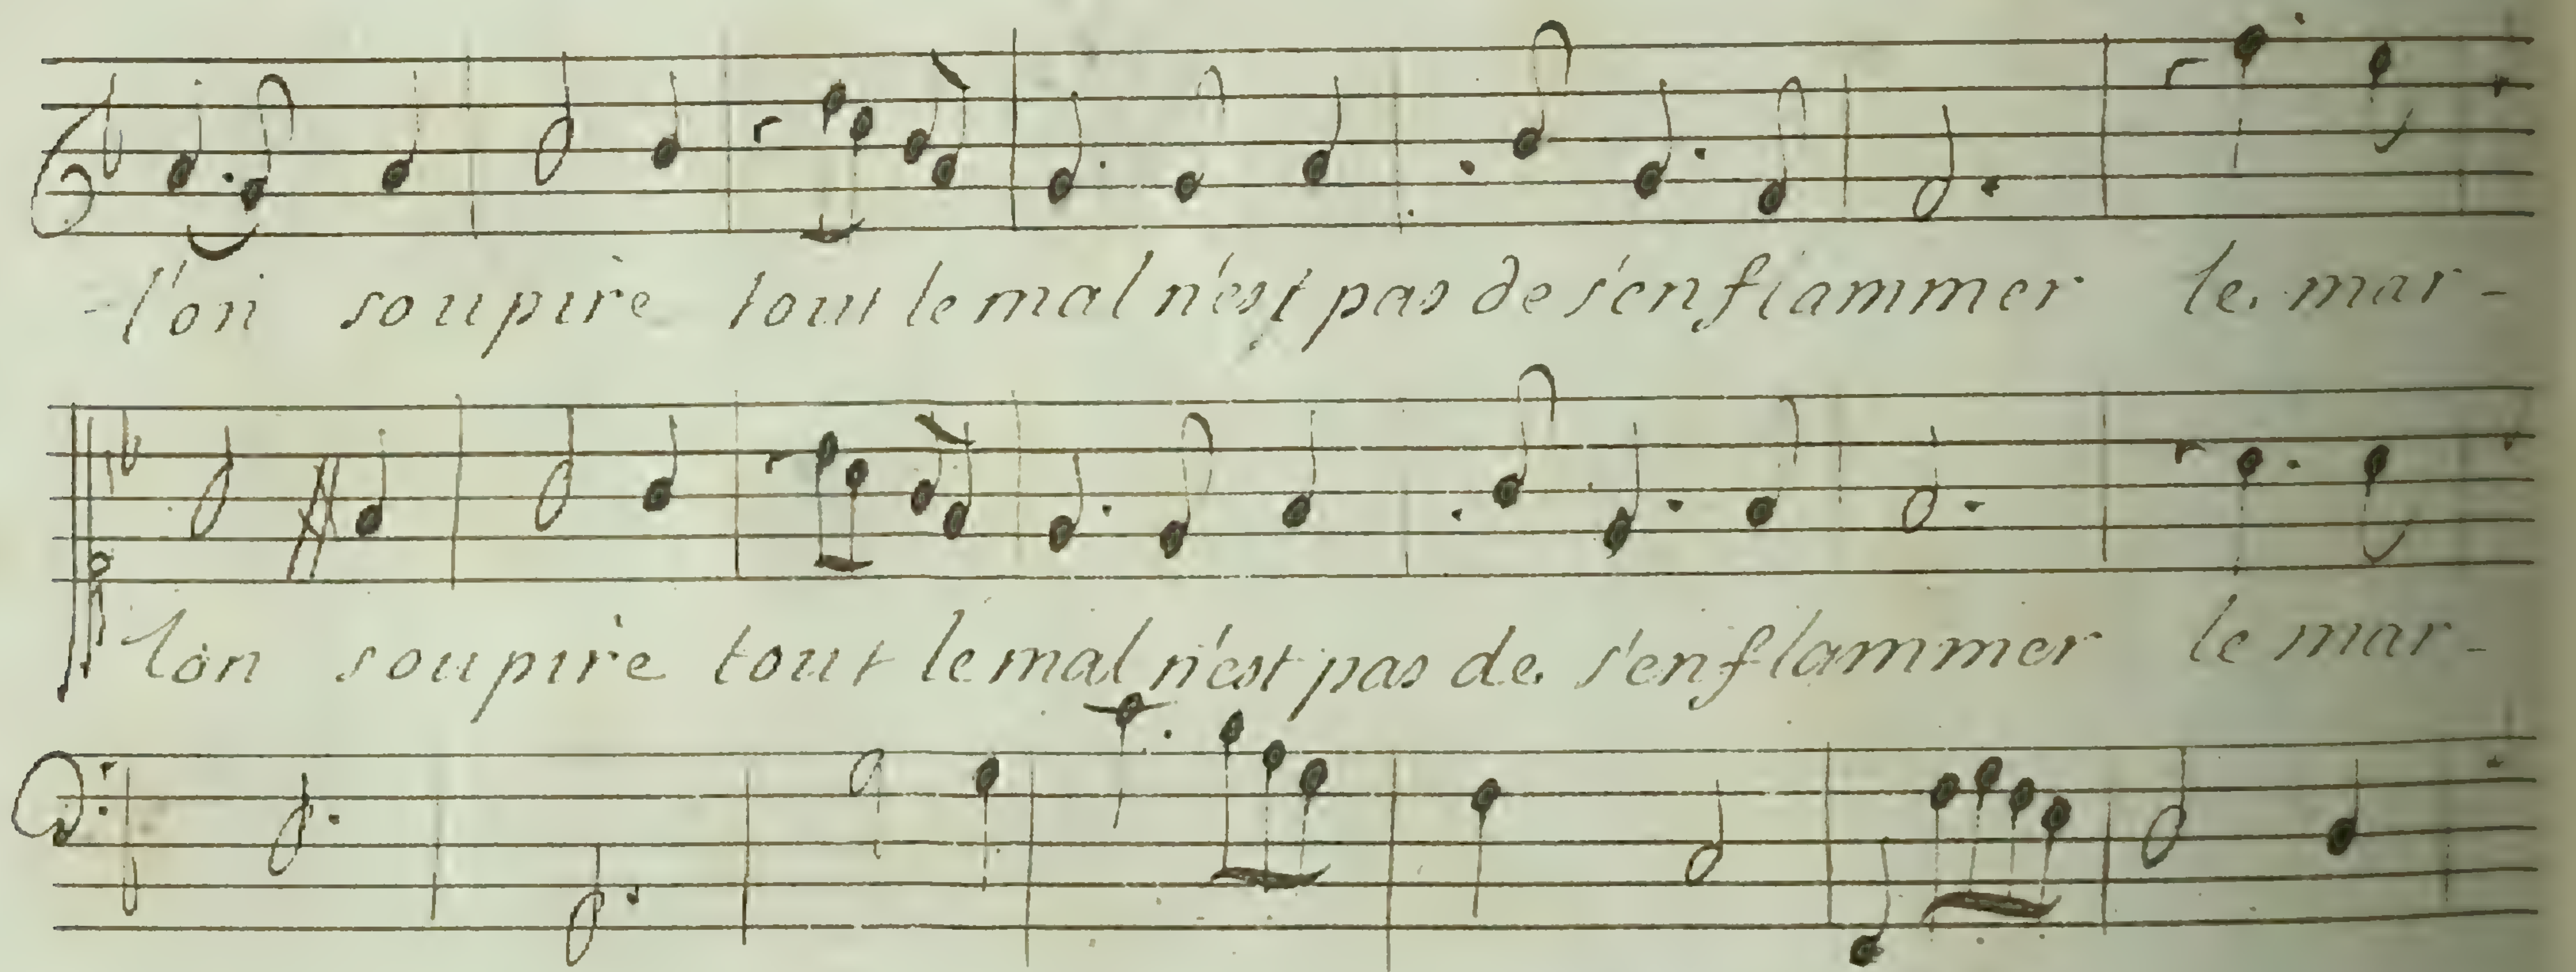 -l'on soupire tout le mal n'est pas de s'enflammer le mar-
l'on soupire tout le mal n'est pas de s'enflammer le mar-